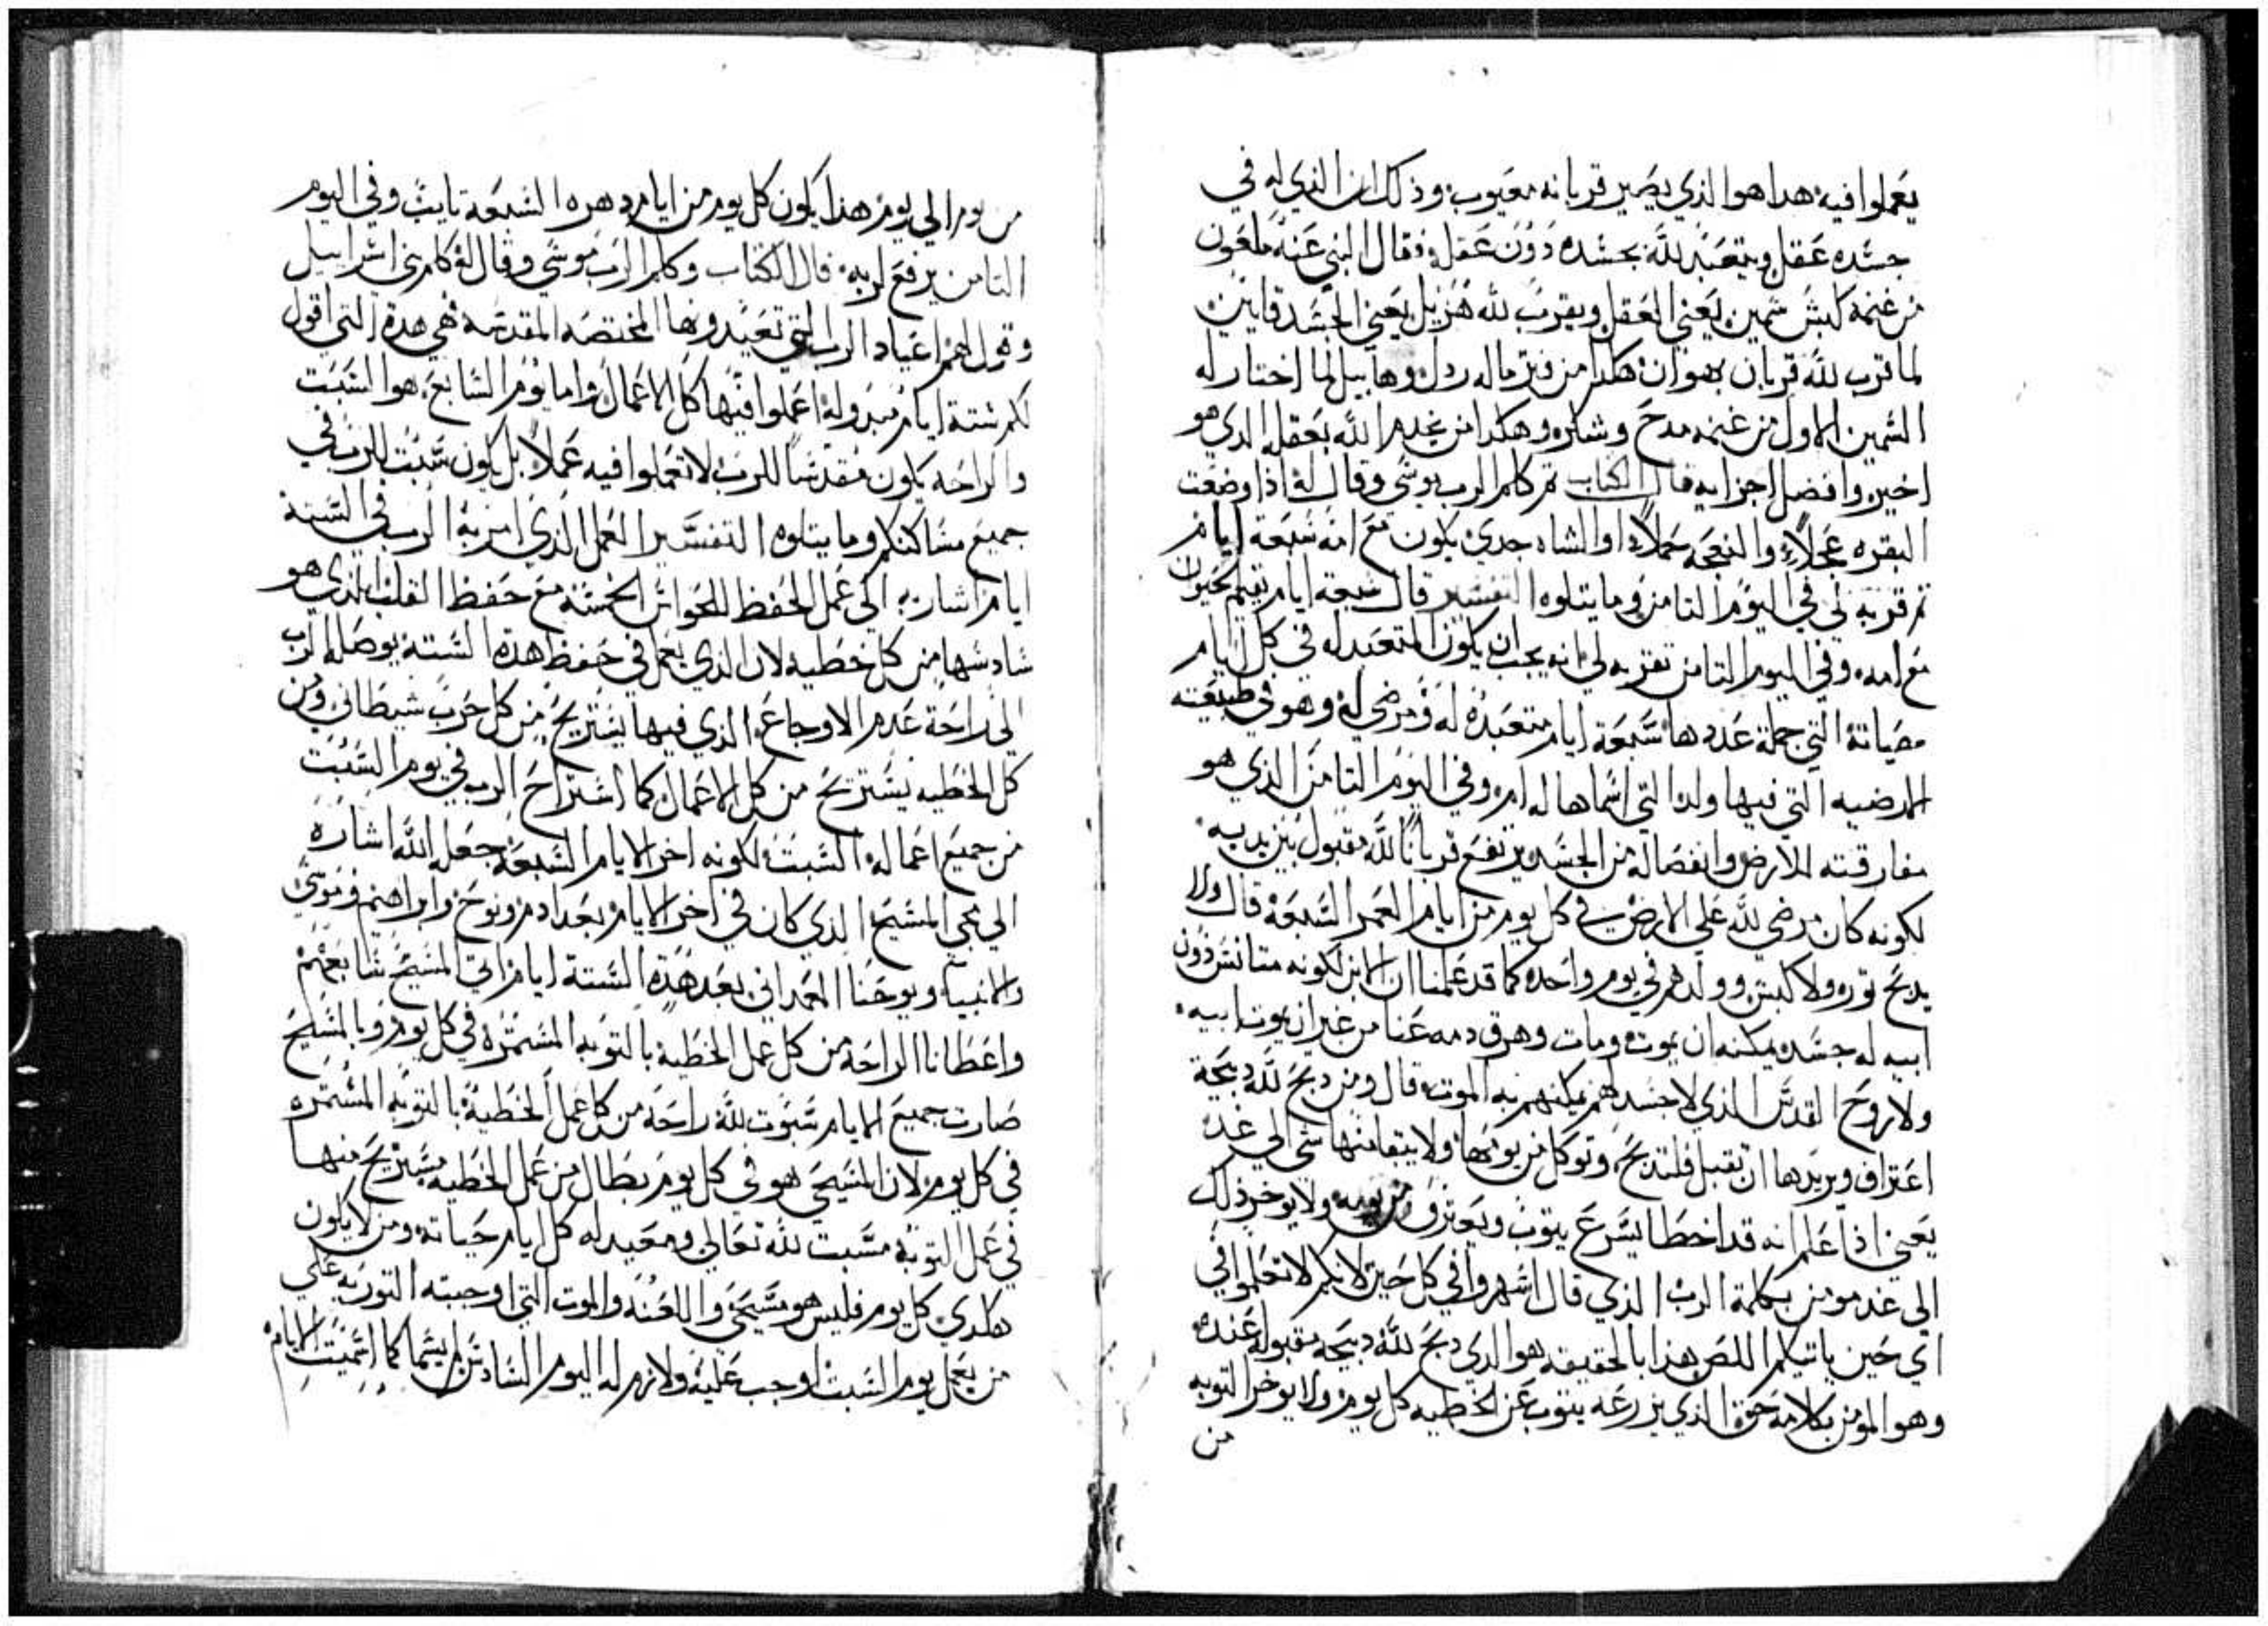 يعملوا فيه هدا هوا الذي يصير قربانه معيوب وذلك ان الذي له في
جسده عقل ويتعبد لله بجسده دون عقله فقال النبي عنه ملعون
من غنمه كبش سمين يعني العقل ويقرب لله هزيل يعني الجسد قايين
لما قرب لله قربان بهوان هكدا من فتر ماله ردل وهابيل لما اختار له
السمين الاول من غنمه مدح وشكره وهكدا من يخدم الله بعقله الدي هو
اخير وافضل اجزايه قال الكتاب تم كلم الرب موسي وقال له اذا وضعت
البقره عجلاً والنعجه حملاً او الشاه جدي يكون مع امه سبعة ايام
تم قربه لي في اليوم التامن وما يتلوه التفسير قال سبعة ايام يقيم
مع امه وفي اليوم التامن تقربه لي انه يجب ان يكون المتعبد له في كل ايام
التي جملة عددها سبعة ايام متعبده له ومرضي له وهو في طبيعته
المرضيه التي فيها ولد التي اسماها له امه وفي اليوم التامن الذي هو
مفارقته للارض وانفصاله من الجسد يرتفع قرباناً لله مقبول بين يديه
لكونه كان مرضي لله علي الارض في كل يوم من ايام العمر السبعة قال ولا
يدبح توره ولا كبش وولدهم في يوم واحده كما قد علمنا ان الابن لكونه متانس دون
ابيه له جسد يمكنه ان يموت ومات وهرق دمه عنا من غير ان يموت ابيه
ولا روح القدس الذي لا جسد لهم يمكنهم به الموت قال ومن دبح لله دبيحة
اعتراف ويريدها ان تقبل فلتدبح وتوكل من يومها ولا يتبقا منها شي الي غده
يعني اذا علم انه قد اخطا يسرع يتوب ويعترف من يومه ولا يوخر ذلك
الي غد مومن بكلمة الرب الذي قال اسهروا في كل حين لانكم لا تعلموا في
اي حين ياتيكم اللص هذا بالحقيقه هو الدي دبح لله دبيحه مقبوله عنده
وهو المومن بكلامه حقه الذي يزرعه يتوب عن الخطيه كل يوم ولا يوخر التوبه
من
من يوم الي يوم هذا يكون كل يوم من ايام دهره السبعة تايب وفي اليوم
التامن يرفع لربه قال الكتاب وكلم الرب موسي وقال له كلم بني اسراييل
وقول لهم اعياد الرب التي تعيدونها المختصه المقدسه هي هده التي اقول
لكم ستة ايام اعملوا فيها كل الاعمال واما يوم السابع هو السبت
والراحه يكون مقدساً للرب لا تعملوا فيه عملاً بل يكون سبت للرب في
جميع مساكنكم وما يتلوه التفسير العمل الذي امر به الرب في الستة
ايام اشار به الي عمل الحفظ للحواس الخمسه مع حفظ القلب الذي هو
سادسها من كل خطيه لان الذي يعمل في حفظ هده الستة يوصله الرب
الي راحة عدم الاوجاع الذي فيها يستريح من كل حرب شيطاني ومن
كل الخطيه يستريح من كل الاعمال كما استراح الرب في يوم السبت
من جميع اعماله السبت لكونه اخر الايام السبعة جعله الله اشاره
الي مجي المسيح الذي كان في اخر الايام بعد ادم ونوح وابراهيم وموسي
والانبياء ويوحنا المعمداني بعد هذه الستة ايام اتي المسيح سابعهم
واعطانا الراحة من كل عمل الخطية بالتوبه المستمره في كل يوم وبالمسيح
صارت جميع الايام سبوت لله راحه من كل عمل الخطية بالتوبه المستمره
في كل يوم لان المسيحي هو في كل يوم بطال من عمل الخطيه يستريح منها
في عمل التوبة مسبت لله تعالي ومعيد له كل ايام حياته ومن لا يكون
هكدي كل يوم فليس هو مسيحي واللعنه والموت التي اوجبته التوريه علي
من يعمل يوم السبت اوجب عليه ولازم له اليوم السادس كما الايام